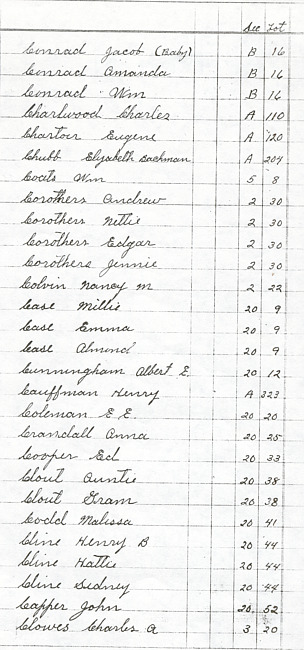 Sec Lot
Conrad Jacob (Baby) B 16
Conrad Amanda B 16
Conrad Wm B 16
Charlwood Charles A 110
Chartor Eugene A 120
Chubb Elizabeth Bachman A 204
Coats Wm 5 8
Corothers Andrew 2 30
Corothers Nettie 2 30
Corothers Edgar 2 30
Corothers Jennie 2 30
Colvin Nancy M 2 22
Case Millie 20 9
Case Emma 20 9
Case Almond 20 9
Cunningham Albert E. 20 12
Cauffman Henry A 323
Coleman E E. 20 20
Crandall Anna 20 25
Cooper Ed 20 33
Clout Auntie 20 38
Clout Gram 20 38
Codd Malissa 20 41
Cline Henry B 20 44
Cline Hattie 20 44
Cline Sidney 20 44
Capper John 20. 52
Clowes Charles A 3 20